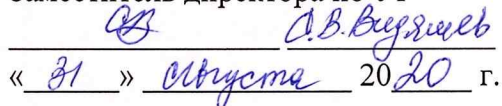 О.В. Видяшев
« 31 » августа 2020 г.